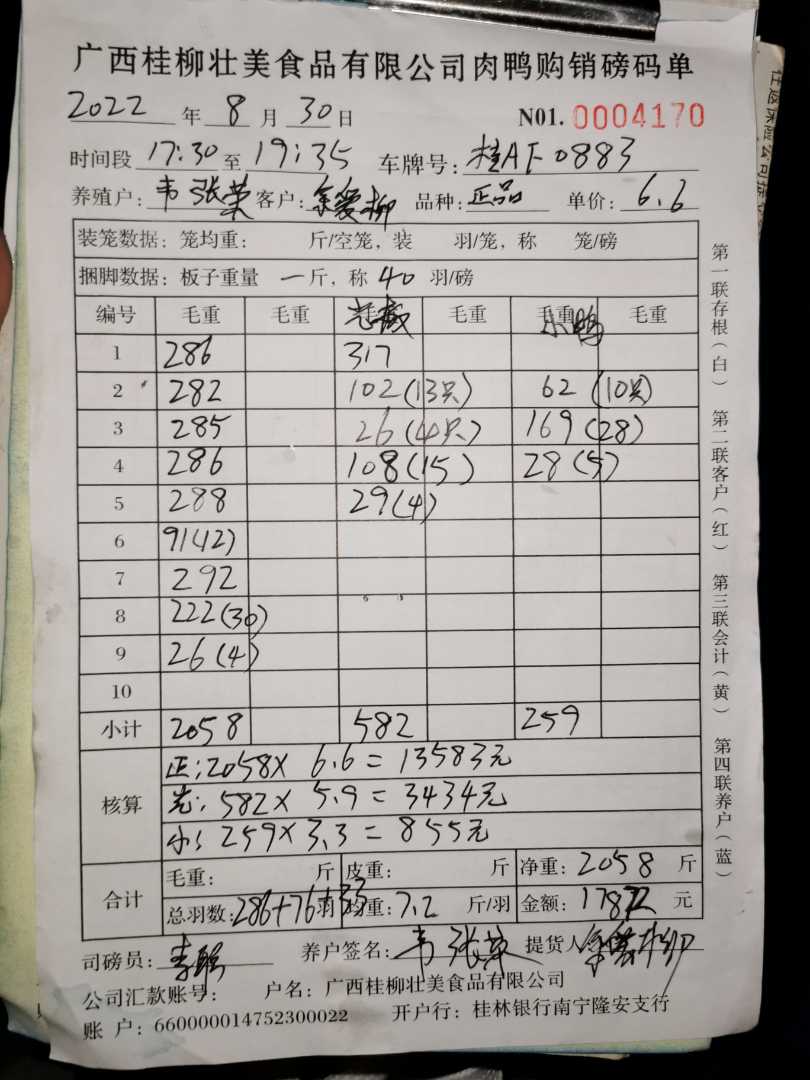 广西桂柳壮美食品有限公司肉鸭购销磅码单
2022 年 8 月 30 日 N01. 0004170
时间段 17:30 至 19:35 车牌号: 桂AF0883
养殖户: 韦张荣 客户: 余爱柳 品种: 正品 单价: 6.6
装笼数据: 笼均重: 斤/空笼, 装 羽/笼, 称 笼/磅
捆脚数据: 板子重量 一斤, 称 40 羽/磅
编号 毛重 毛重 毛重 毛重 毛重 毛重
小鸭
1 286 317
2 282 102(13只) 62(10只)
3 285 26(4只) 169(28)
4 286 108(15) 28(5)
5 288 29(4)
6 91(12)
7 292
8 222(30)
9 26(4)
10
小计 2058 582 259
核算 正:2058× 6.6= 13583元
光:582× 5.9= 3434元
小:259×3.3=855元
合计 毛重: 斤 皮重: 斤 净重: 2058 斤
总羽数: 286+76+羽 均重: 7.2 斤/羽 金额: 17872 元
司磅员: 养户签名: 韦张荣 提货人
公司汇款账号: 户名: 广西桂柳壮美食品有限公司
账 户: 660000014752300022 开户行: 桂林银行南宁隆安支行
第一联存根(白) 第二联客户(红) 第三联会计(黄) 第四联养户(蓝)